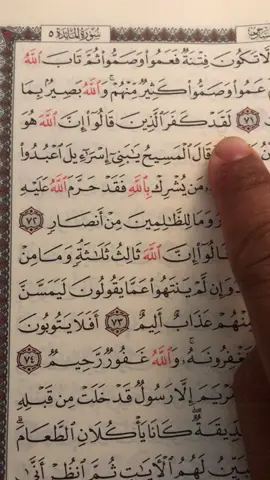 سُورَةُ المَائِدَة ٥
لَا تَكُونَ فِتْنَةٌ فَعَمُوا وَصَمُّوا ثُمَّ تَابَ اللَّهُ
عَمُوا وَصَمُّوا كَثِيرٌ مِّنْهُمْ ۚ وَاللَّهُ بَصِيرٌ بِمَا
٧١ لَقَدْ كَفَرَ الَّذِينَ قَالُوا إِنَّ اللَّهَ هُوَ
قَالَ الْمَسِيحُ يَٰبَنِي إِسْرَٰءِيلَ اعْبُدُوا
مَن يُشْرِكْ بِاللَّهِ فَقَدْ حَرَّمَ اللَّهُ عَلَيْهِ
وَمَا لِلظَّٰلِمِينَ مِنْ أَنصَارٍ ٧٢
قَالُوا إِنَّ اللَّهَ ثَالِثُ ثَلَٰثَةٍ ۘ وَمَا مِنْ
وَإِن لَّمْ يَنتَهُوا عَمَّا يَقُولُونَ لَيَمَسَّنَّ
مِنْهُمْ عَذَابٌ أَلِيمٌ ٧٣ أَفَلَا يَتُوبُونَ
وَيَسْتَغْفِرُونَهُ ۚ وَاللَّهُ غَفُورٌ رَّحِيمٌ ٧٤
مَرْيَمَ إِلَّا رَسُولٌ قَدْ خَلَتْ مِن قَبْلِهِ
صِدِّيقَةٌ ۖ كَانَا يَأْكُلَانِ الطَّعَامَ ۗ
نُبَيِّنُ لَهُمُ الْآيَٰتِ ثُمَّ انظُرْ أَنَّىٰ